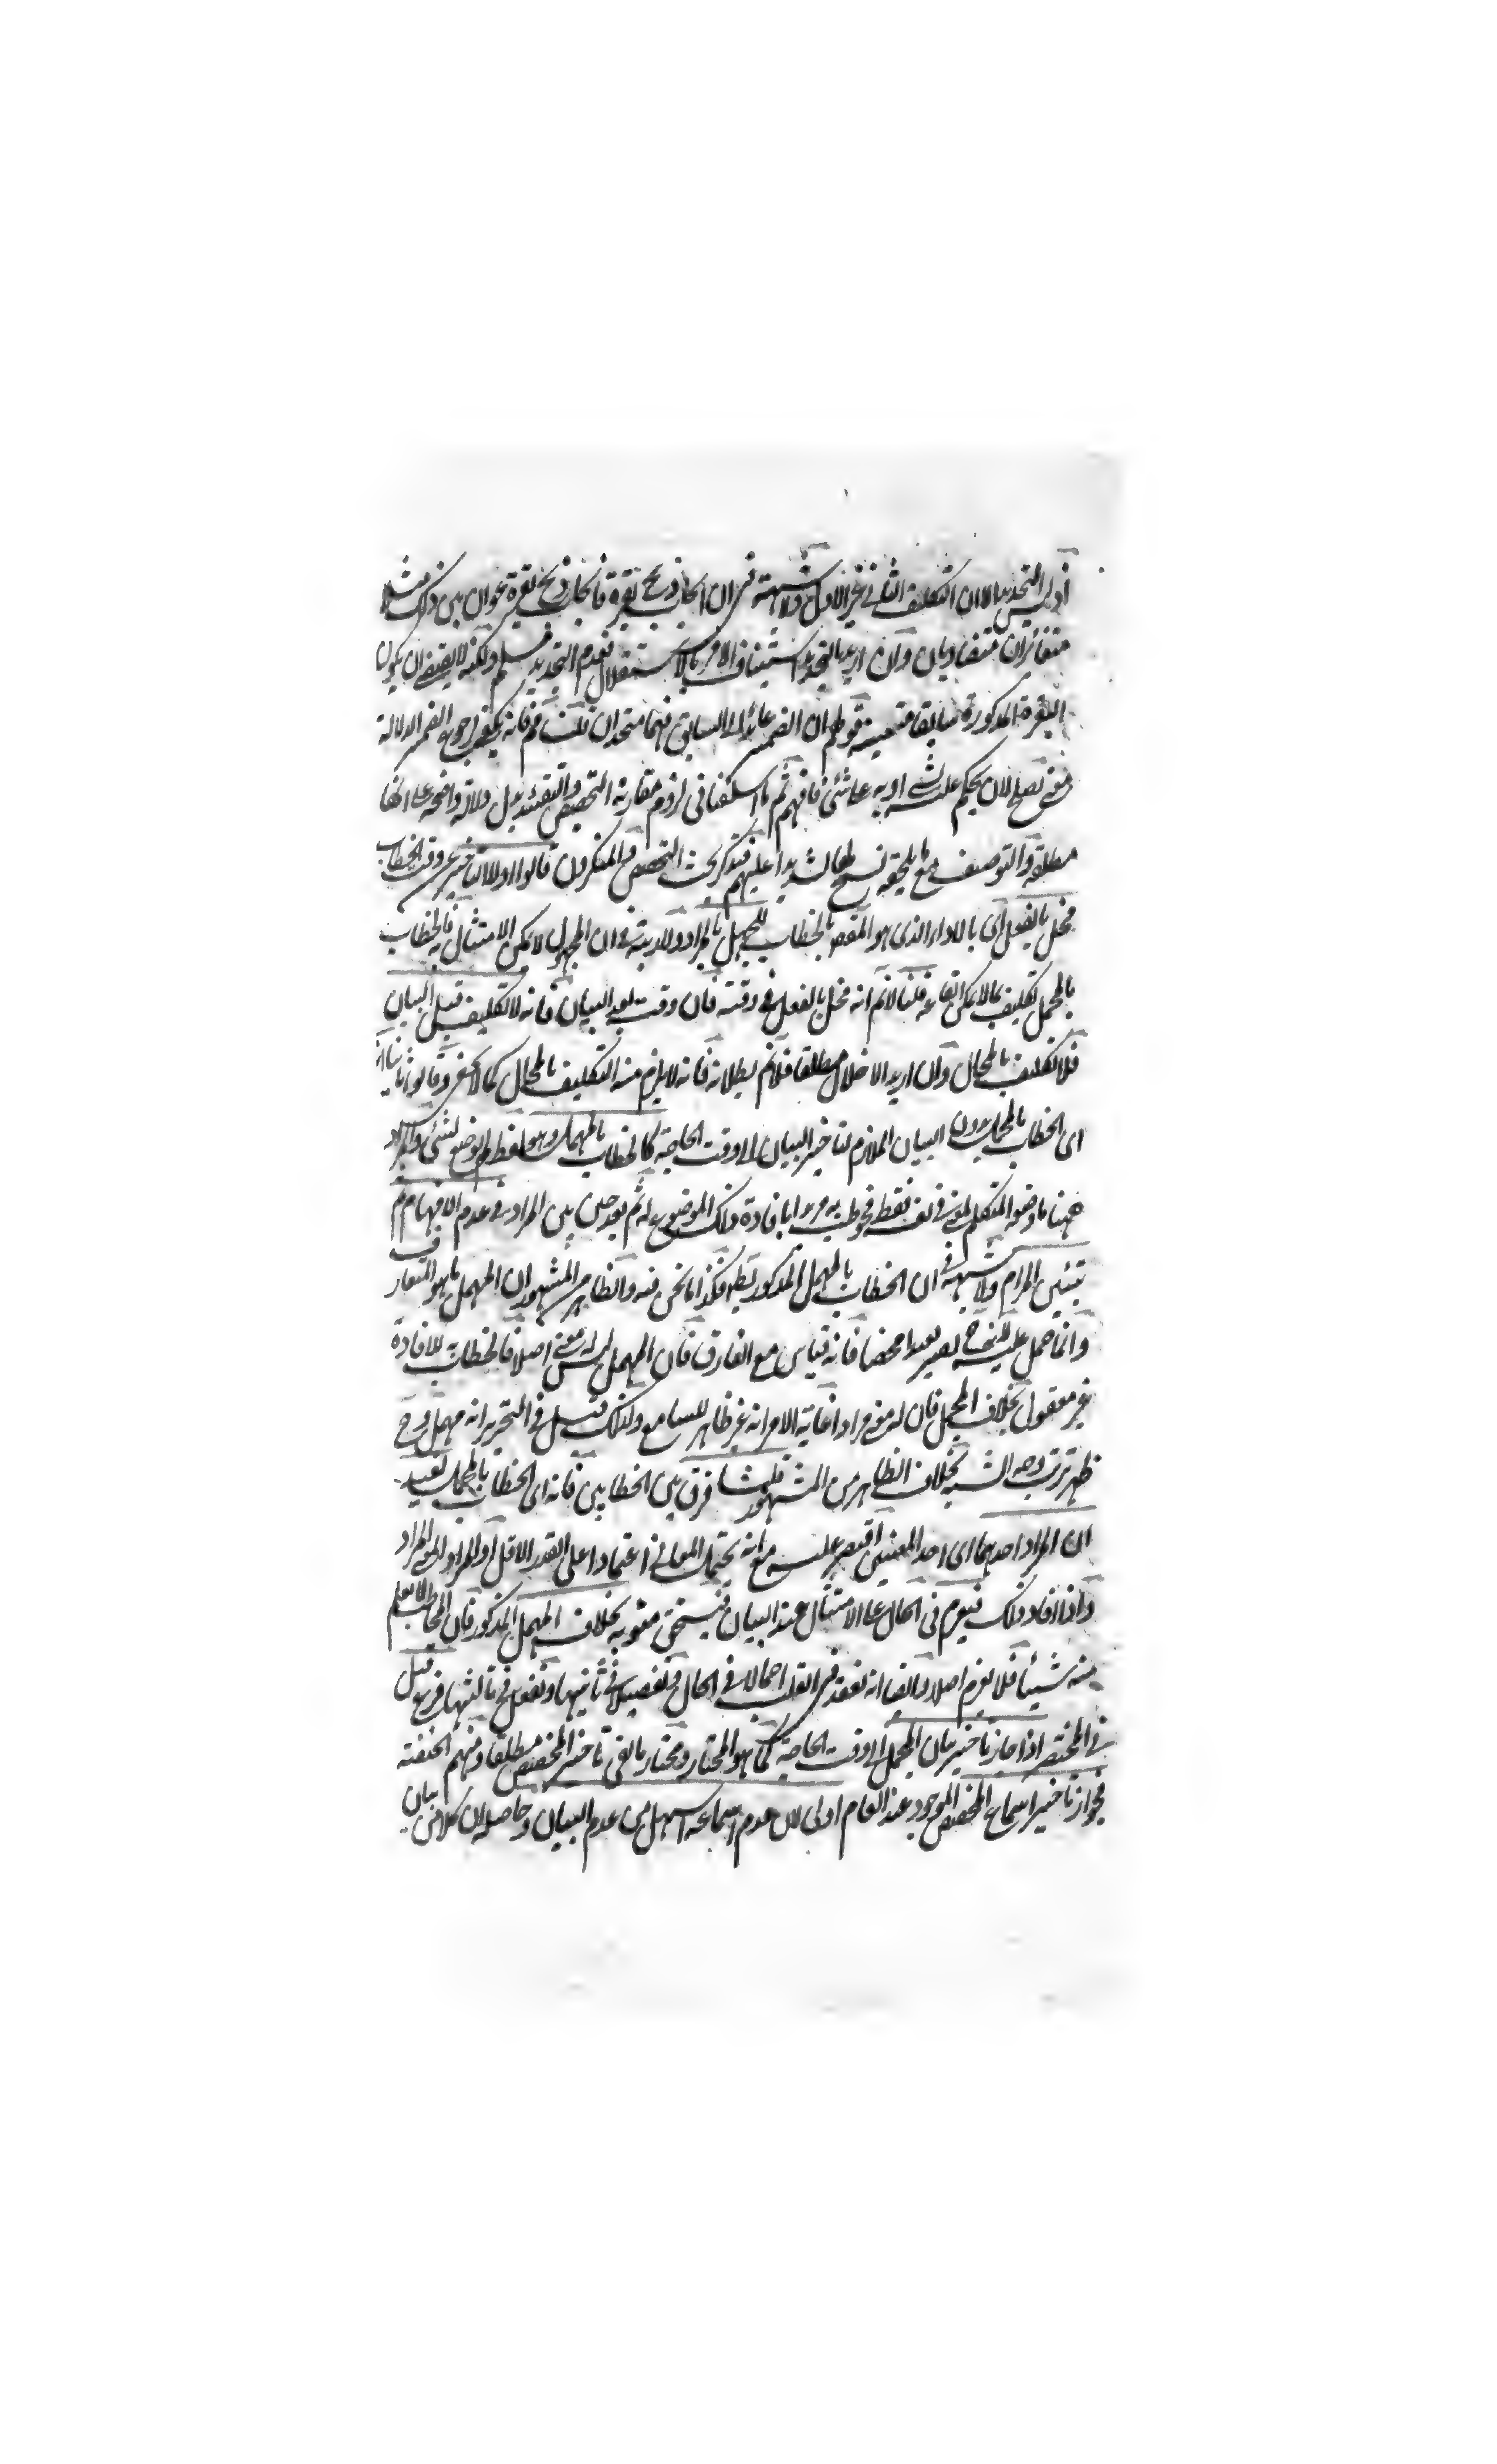 اذ ليس التجديد الا ان التكليف الثاني غير الاول ولا شبهة في ان ايجاب ذبح بقرة فايجاب ذبح بقرة عوان بين ذلك مثلا
متغائران متضادان وان اريد بالتجديد استيناف الامر بالاستقلال فعدم التجديد مسلم ولكنه لا يقتضي ان يكون
البقرة المذكورة سابقا متعينة قولهم ان الضمير عائد الى السابق فهما متحدان قلت نعم فانه يكفي لرجوع الضمير الدلالة
معنى تصلح لان يحكم عليه او به على شئ فافهم ثم ما اسلفنا في لزوم مقارنة التخصيص والتقييد يدل دلالة واضحة على انها
مطلقة والتوصيف مع ما يلحقه نسخ لها لتشديد عليهم فتذكر بحث التخصيص المنكرون قالوا اولا التاخير عن وقت الخطاب
مخل بالفعل اى بالاداء الذى هو المقصود بالخطاب للجهل بالمراد ولا ريبة في ان المجهول لا يمكن الامتثال به فالخطاب
بالمجمل تكليف بما لا يمكن ايقاعه قلنا لا نم انه مخل بالفعل في وقته فان وقته بعد البيان فانه لا تكليف قبل البيان
فلا تكليف بالمحال وان اريد الاخلال مطلقا فلا نم بطلانه فانه لا يلزم منه التكليف بالمحال كما لا يخفى وقالوا ثانيا انه
اى الخطاب بالمجمل بدون البيان الملازم لتاخير البيان الى وقت الحاجة كالخطاب بالمهمل وهو لفظ لم يوضع لشئ والمراد
ههنا ما وضعه المتكلم لمعنى في نفسه فقط فخوطب به مريدا بافادة ذلك الموضوع له ثم بعد حين بين المراد في عدم الافهام ثم
تبيين المرام ولا شبهة في ان الخطاب بالمهمل المذكور بطل فكذا ما نحن فيه والظاهر من المشهور ان المهمل ما هو المتعارف
وانما حمل عليه لانه ح يصير بعيدا محضا فانه قياس مع الفارق فان المهمل ليس له معنى اصلا فالخطاب به للافادة
غير معقول بخلاف المجمل فان له معنى مرادا غاية الامر انه غير ظاهر للسامع ولذلك قيل في التحرير انه مهمل وح
ظهر ترتب وجه الشبه بخلاف الظاهر من المشهور قلت فرق بين الخطابين فانه اى الخطاب بالمجمل يفيد
ان المراد احدهما اى احد المعنيين اقتصر عليه مع انه يحتمل المعاني اعتمادا على القدر الاقل او المراد المعنى المراد
واذا افاد ذلك فيعزم في الحال على الامتثال عند البيان فيستحق مثوبة بخلاف المهمل المذكور فان المخاطب لا يعلم
منه شيئا فلا يعزم اصلا وايضا انه يعتقد في القلب اجمالا في الحال وتفصيلا في ثانيها ويفعل في ثالثها فرع قيل
في المختصر اذا جاز تاخير بيان المجمل الى وقت الحاجة كما هو المختار ومختار ما نفى تاخير المخصص مطلقا ومنهم الحنفية
فجواز تاخير اسماع المخصص الموجود عند العام اولى لان عدم اسماعه اسهل من عدم البيان وحاصله ان كلا من بيان